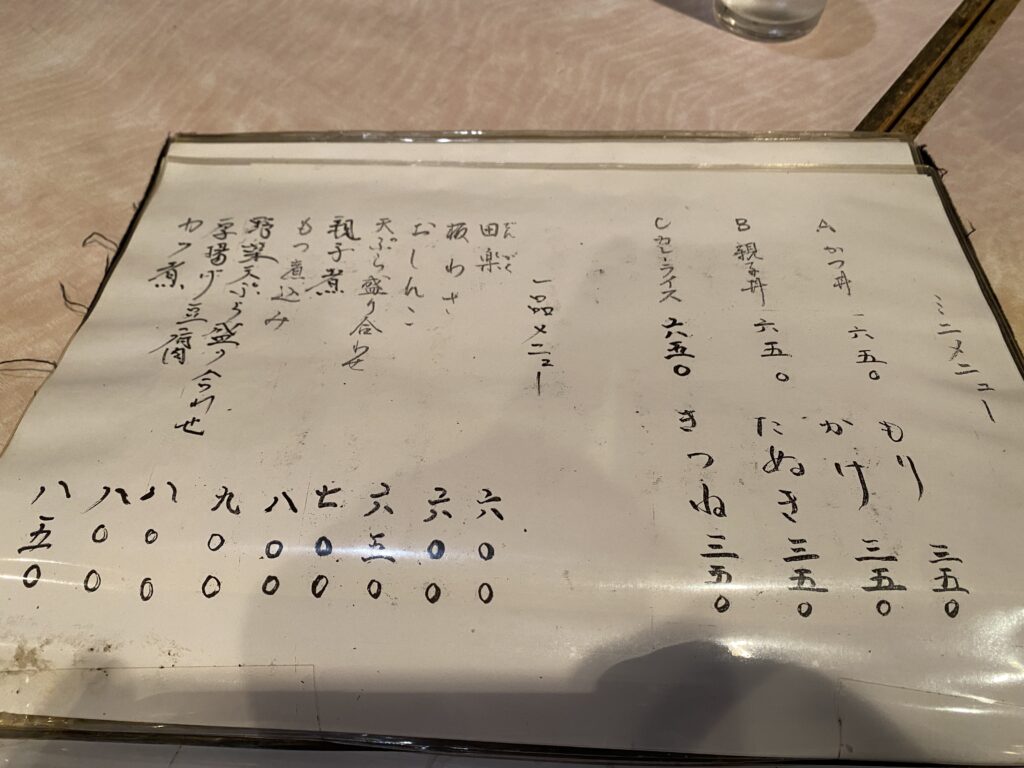 ミニメニュー
A かつ丼 六五〇
もり 三五〇
B 親子丼 六五〇
かけ 三五〇
C カレーライス 六五〇
たぬき 三五〇
きつね 三五〇
一品メニュー
でんがく
田楽 六〇〇
板わさ 六〇〇
おしんこ 六五〇
天ぷら盛り合わせ 七〇〇
親子煮 八〇〇
もつ煮込み 九〇〇
野菜天ぷら盛り合わせ 八〇〇
厚揚げ豆腐 八〇〇
カツ煮 八五〇